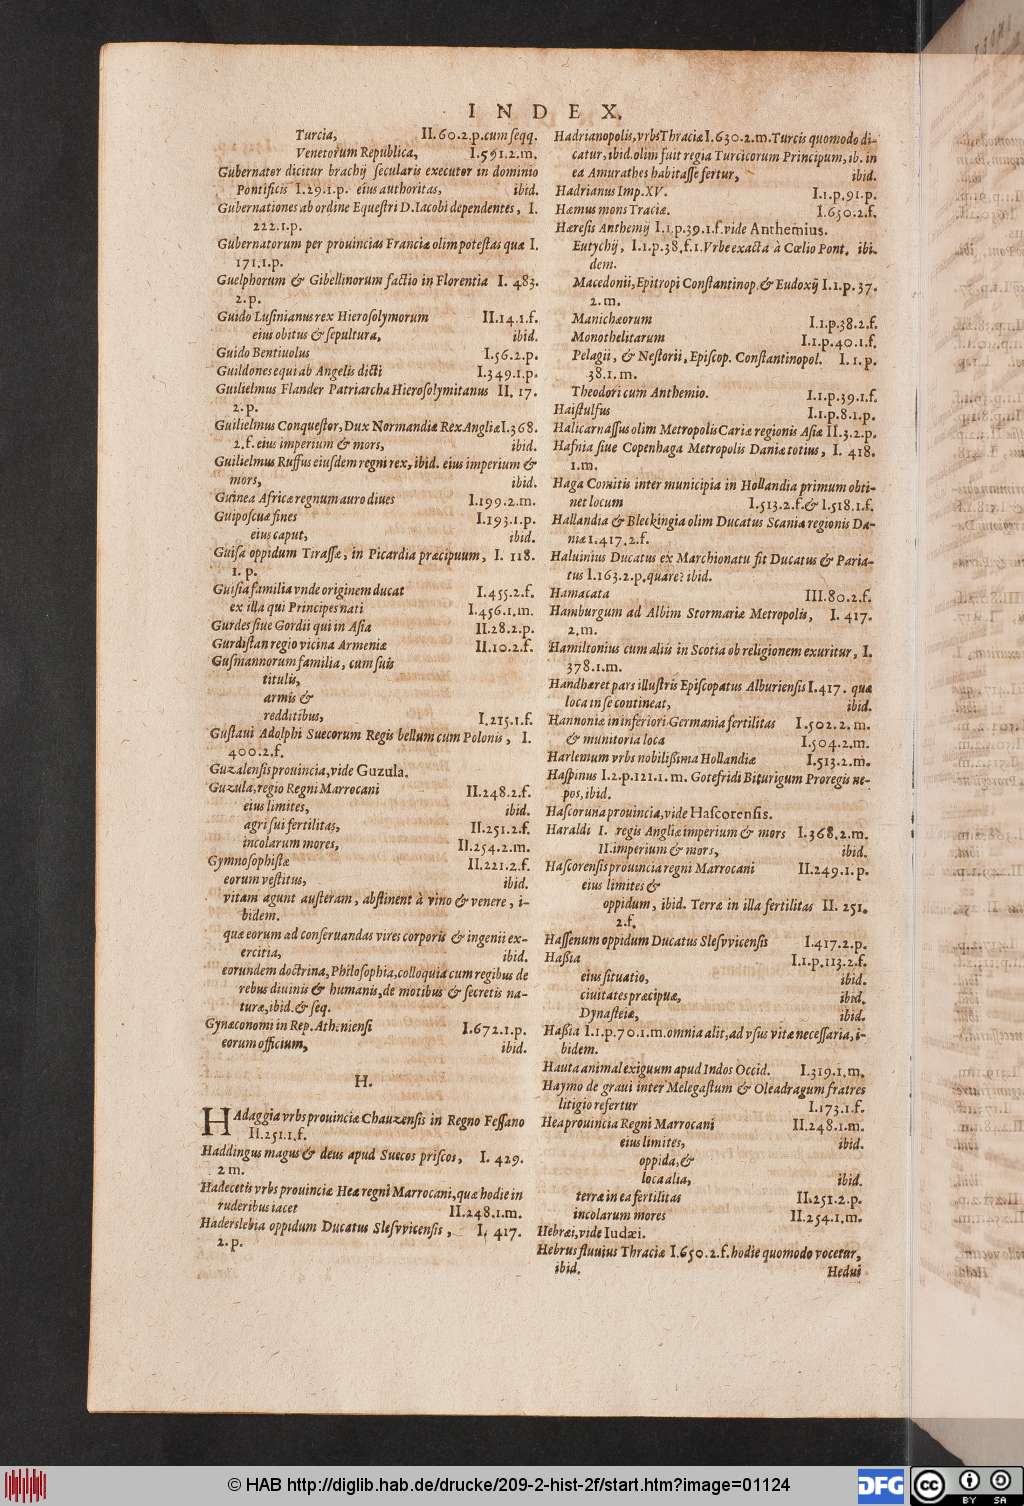 INDEX.
Turcia, II.60.2.p.cum seqq.
Venetorum Republica, I.591.2.m.
Gubernator dicitur brachij secularis executor in dominio
Pontificis I.29.1.p. eius authoritas, ibid.
Gubernationes ab ordine Equestri D.Iacobi dependentes, I.
222.1.p.
Gubernatorum per prouincias Franciæ olim potestas quæ I.
171.1.p.
Guelphorum & Gibellinorum factio in Florentia I. 483.
2.p.
Guido Lusinianus rex Hierosolymorum II.14.1.f.
eius obitus & sepultura, ibid.
Guido Bentiuolus I.56.2.p.
Guildones equi ab Angelis dicti I.349.1.p.
Guilielmus Flander Patriarcha Hierosolymitanus II. 17.
2.p.
Guilielmus Conquestor, Dux Normandiæ Rex Angliæ I.368.
2.f. eius imperium & mors, ibid.
Guilielmus Ruffus eiusdem regni rex, ibid. eius imperium &
mors, ibid.
Guinea Africæ regnum auro diues I.199.2.m.
Guiposcuæ fines I.193.1.p.
eius caput, ibid.
Guisa oppidum Tirassæ, in Picardia præcipuum, I. 118.
1. p.
Guisia familia vnde originem ducat I.455.2.f.
ex illa qui Principes nati I.456.1.m.
Gurdes siue Gordii qui in Asia II.28.2.p.
Gurdistan regio vicina Armeniæ II.10.2.f.
Gusmannorum familia, cum suis
titulis,
armis &
redditibus, I.215.1.f.
Gustaui Adolphi Suecorum Regis bellum cum Polonis, I.
400.2.f.
Guzalensis prouincia, vide Guzula.
Guzula, regio Regni Marrocani II.248.2.f.
eius limites, ibid.
agri sui fertilitas, II.251.2.f.
incolarum mores, II.254.2.m.
Gymnosophistæ II.221.2.f.
eorum vestitus, ibid.
vitam agunt austeram, abstinent à vino & venere, i-
bidem.
quæ eorum ad conseruandas vires corporis & ingenii ex-
ercitia, ibid.
eorundem doctrina, Philosophia, colloquia cum regibus de
rebus diuinis & humanis, de motibus & secretis na-
turæ, ibid. & seq.
Gynæconomi in Rep. Atheniensi I.672.1.p.
eorum officium, ibid.
H.
HAdaggia vrbs prouinciæ Chauzensis in Regno Fessano
II.251.1.f.
Haddingus magus & deus apud Suecos priscos, I. 429.
2 m.
Hadecetis vrbs prouinciæ Heæ regni Marrocani, quæ hodie in
ruderibus iacet II.248.1.m.
Haderslebia oppidum Ducatus Slesvvicensis, I. 417.
2.p.
Hadrianopolis, vrbs Thraciæ I.630.2.m. Turcis quomodo di-
catur, ibid. olim fuit regia Turcicorum Principum, ib. in
ea Amurathes habitasse fertur, ibid.
Hadrianus Imp. XV. I.1.p.91.p.
Hæmus mons Traciæ. I.650.2.f.
Hæresis Anthemij I.1.p.39.1.f. vide Anthemius.
Eutychij, I.1.p.38.f.1. Vrbe exacta à Cœlio Pont. ibi-
dem.
Macedonii, Epitropi Constantinop. & Eudoxij I.1.p.37.
2.m.
Manichæorum I.1.p.38.2.f.
Monothelitarum I.1.p.40.1.f.
Pelagii, & Nestorii, Episcop. Constantinopol. I.1.p.
38.1.m.
Theodori cum Anthemio. I.1.p.39.1.f.
Haistulfus I.1.p.8.1.p.
Halicarnassus olim Metropolis Cariæ regionis Asiæ II.3.2.p.
Hafnia siue Copenhaga Metropolis Daniæ totius, I. 418.
1.m.
Haga Comitis inter municipia in Hollandia primum obti-
net locum I.513.2.f. & I.518.1.f.
Hallandia & Bleckingia olim Ducatus Scania regionis Da-
niæ I.417.2.f.
Haluinius Ducatus ex Marchionatu fit Ducatus & Paria-
tus I.163.2.p. quare? ibid.
Hamacata III.80.2.f.
Hamburgum ad Albim Stormariæ Metropolis, I. 417.
2.m.
Hamiltonius cum aliis in Scotia ob religionem exuritur, I.
378.1.m.
Handhæret pars illustris Episcopatus Alburiensis I.417. quæ
loca in se contineat, ibid.
Hannoniæ in inferiori Germania fertilitas I.502.2.m.
& munitoria loca I.504.2.m.
Harlemum vrbs nobilissima Hollandiæ I.513.2.m.
Haspinus I.2.p.121.1.m. Gotefridi Biturigum Proregis ne-
pos, ibid.
Hascoruna prouincia, vide Hascorensis.
Haraldi I. regis Angliæ imperium & mors I.368.2.m.
II. imperium & mors, ibid.
Hascorensis prouincia regni Marrocani II.249.1.p.
eius limites &
oppidum, ibid. Terræ in illa fertilitas II. 251.
2.f.
Hassenum oppidum Ducatus Slesvvicensis I.417.2.p.
Hassia I.1.p.113.2.f.
eius situatio, ibid.
ciuitates præcipuæ, ibid.
Dynasteiæ, ibid.
Hassia I.1.p.70.1.m. omnia alit, ad vsus vitæ necessaria, i-
bidem.
Hauta animal exiguum apud Indos Occid. I.319.1.m.
Haymo de graui inter Melegastum & Oleadragum fratres
litigio refertur I.173.1.f.
Hea prouincia Regni Marrocani II.248.1.m.
eius limites, ibid.
oppida, &
loca alia, ibid.
terræ in ea fertilitas II.251.2.p.
incolarum mores II.254.1.m.
Hebræi, vide Iudæi.
Hebrus fluuius Thraciæ I.650.2.f. hodie quomodo vocetur,
ibid.
Hedui
© HAB http://diglib.hab.de/drucke/209-2-hist-2f/start.htm?image=01124
DFG
cc BY SA